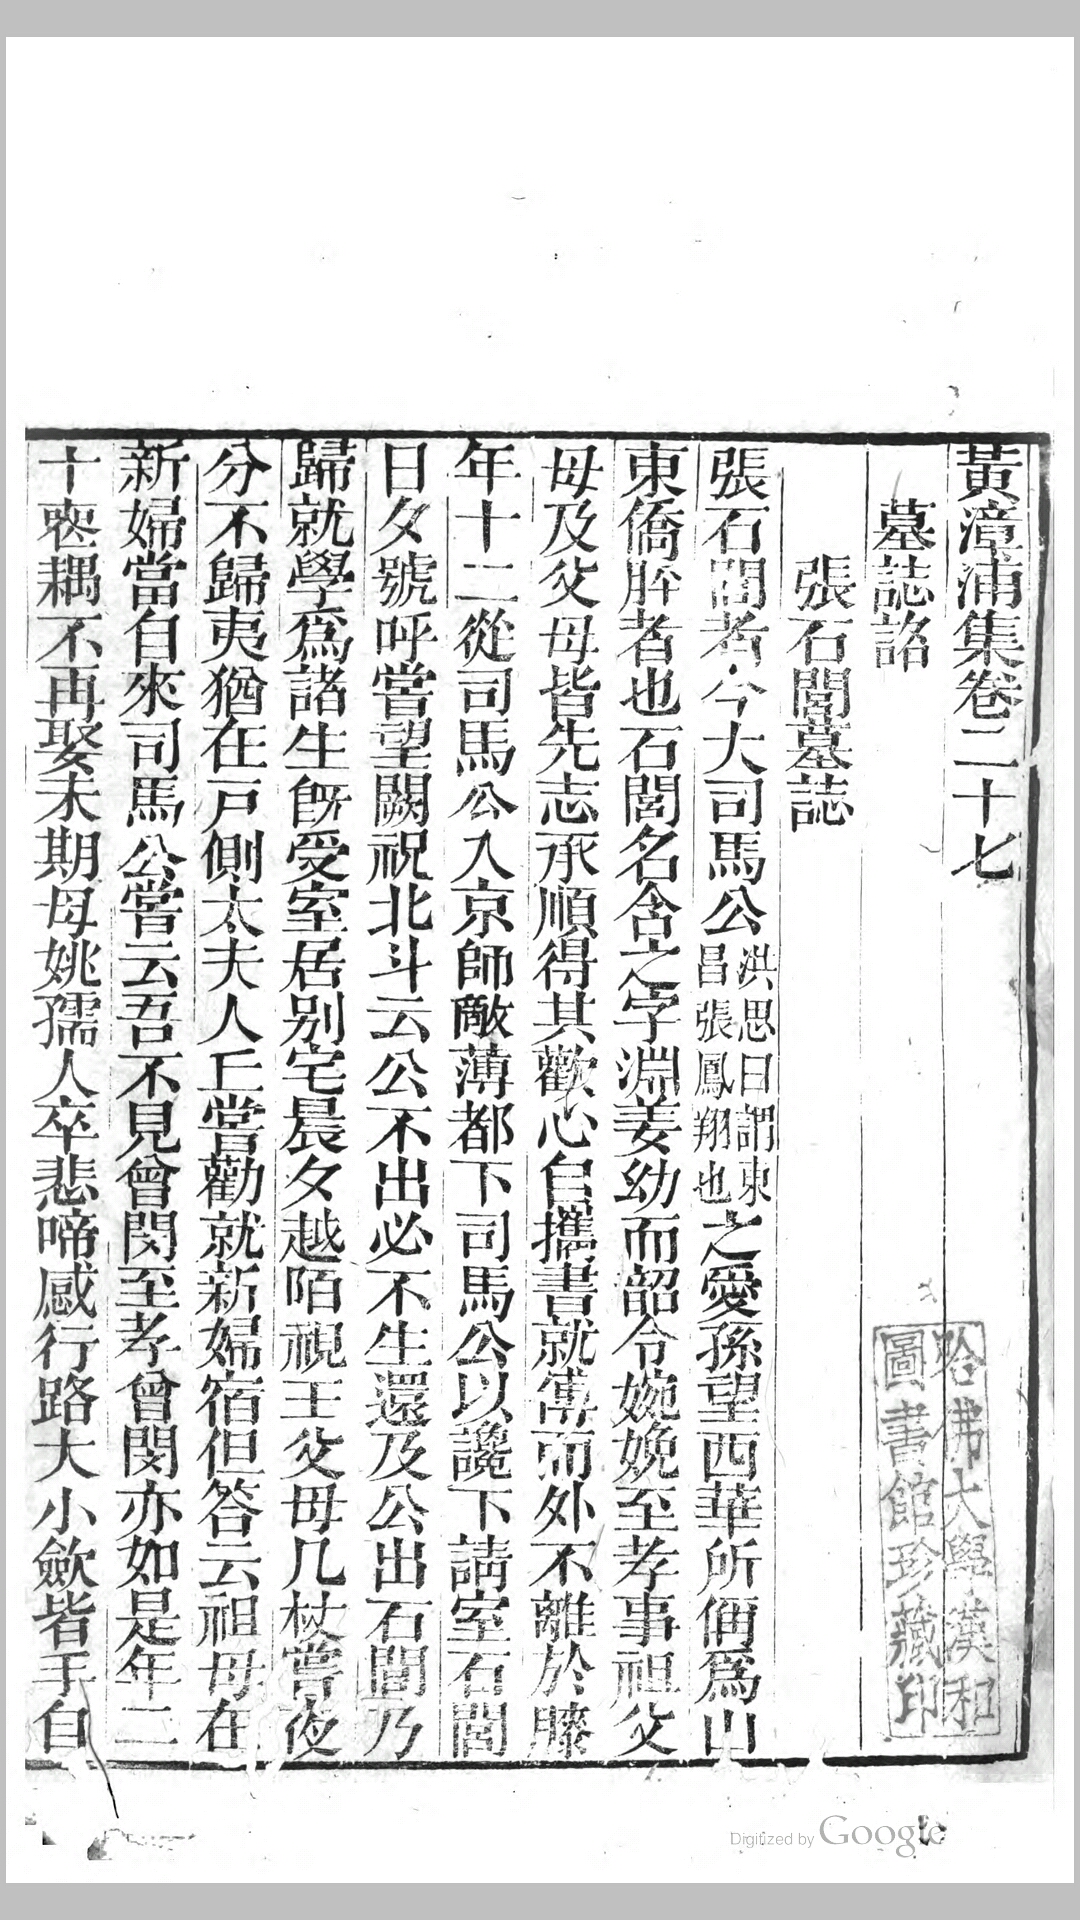 黃漳浦集卷二十七
墓誌銘
張石閭墓誌
張石閭者今大司馬公洪思曰謂東昌張鳳翔也之愛孫望西華所価爲山
東僑胖者也石閭名含之字淵姜幼而韶令婉娩至孝事祖父
母及父母皆先志承順得其歡心自攜書就傅而外不離於膝
年十二從司馬公入京師敵薄都下司馬公以讒下請室石閭
日夕號呼嘗望闕祝北斗云公不出必不生還及公出石閭乃
歸就學爲諸生旣受室居別宅晨夕越陌視王父母几杖嘗夜
分不歸夷猶在戸側太夫人丘嘗勸就新婦宿但答云祖母在
新婦當自來司馬公嘗云吾不見曾閔至孝曾閔亦如是年二
十喪耦不再娶未期母姚孺人卒悲啼感行路大小歛皆手自
哈佛大學漢和
圖書館珍藏印
Digitized by Google